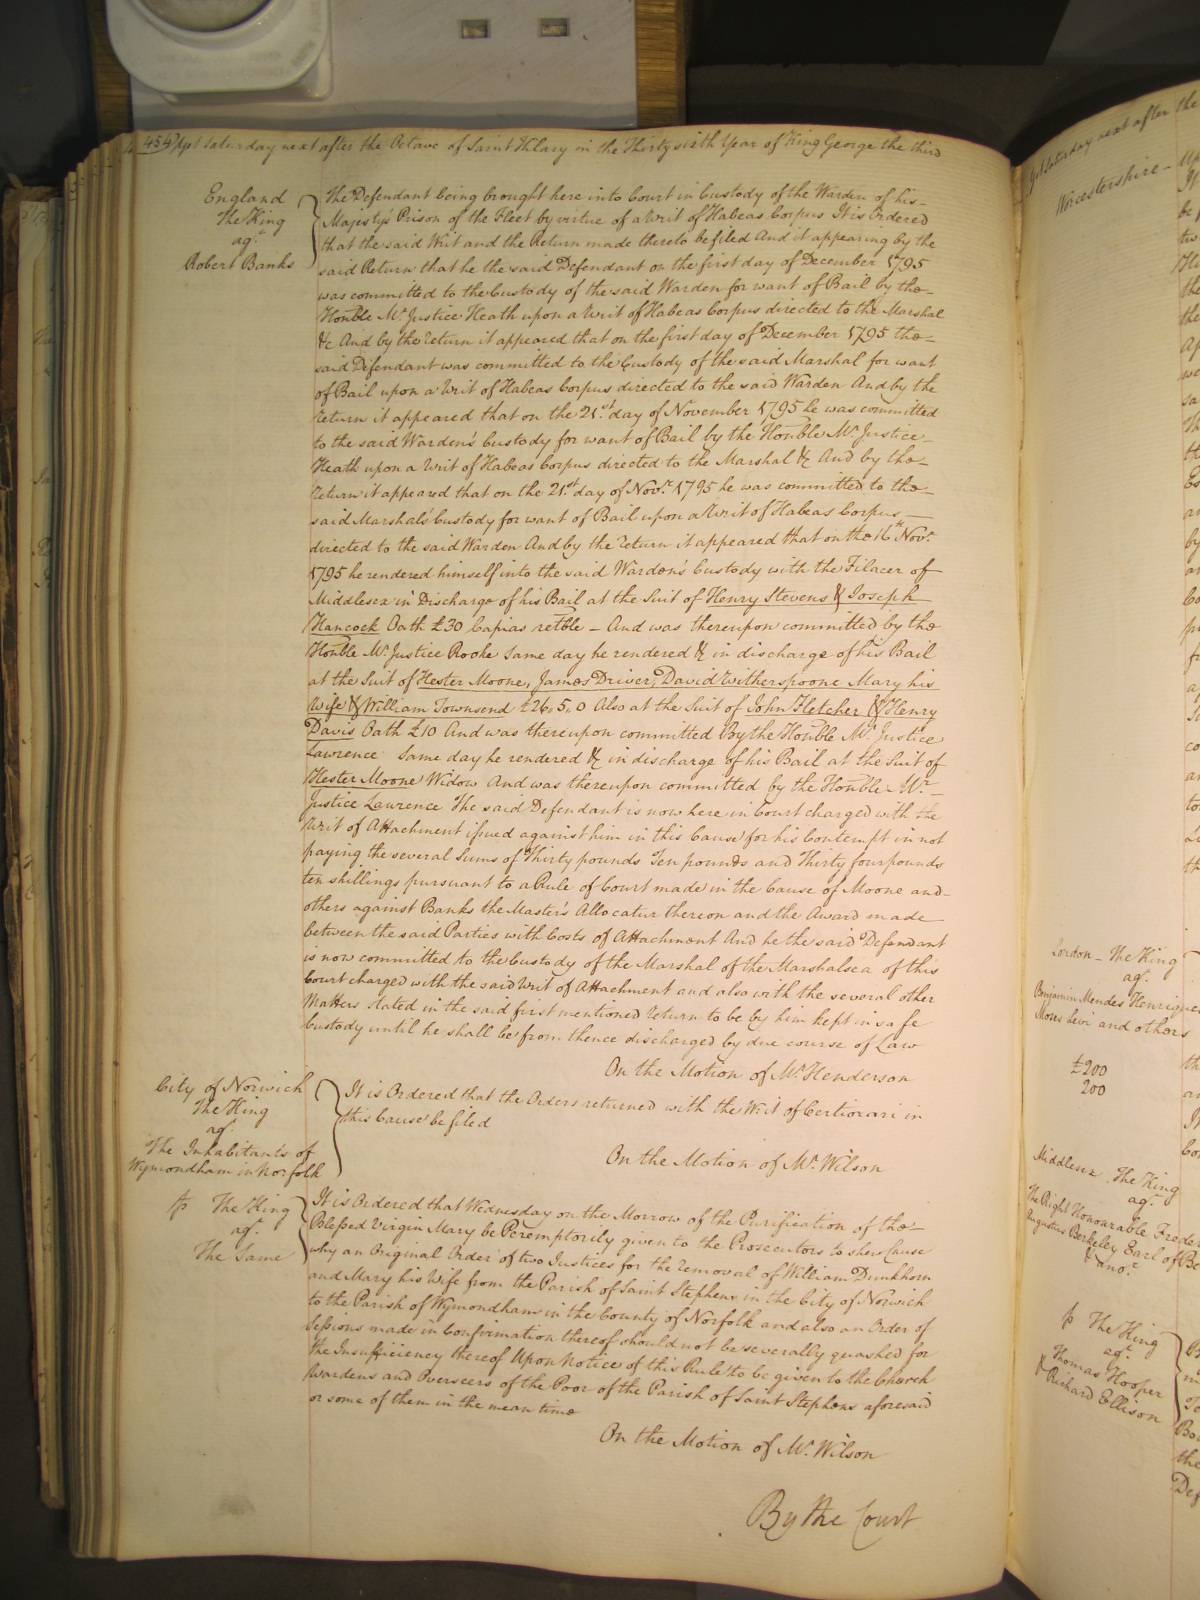 454 Yet Saturday next after the Octave of Saint Hilary in the Thirty sixth Year of King George the third
England
The King
agt.
Robert Banks
The Defendant being brought here into Court in Custody of the Warden of his
Majesty's Prison of the Fleet by virtue of a Writ of Habeas Corpus It is Ordered
that the said Writ and the Return made thereto be filed And it appearing by the
said Return that he the said Defendant on the first day of December 1795
was committed to the Custody of the said Warden for want of Bail by the
Honble Mr. Justice Heath upon a Writ of Habeas Corpus directed to the Marshal
&c And by the return it appeared that on the first day of December 1795 the
said Defendant was committed to the Custody of the said Marshal for want
of Bail upon a Writ of Habeas Corpus directed to the said Warden And by the
return it appeared that on the 21st. day of November 1795 he was committed
to the said Warden's Custody for want of Bail by the Honble Mr. Justice
Heath upon a Writ of Habeas Corpus directed to the Marshal &c And by the
return it appeared that on the 21st. day of Novr. 1795 he was committed to the
said Marshal's Custody for want of Bail upon a Writ of Habeas Corpus
directed to the said Warden And by the return it appeared that on the 16th Novr.
1795 he rendered himself into the said Warden's Custody with the Filacer of
Middlesex in Discharge of his Bail at the Suit of Henry Stevens & Joseph
Hancock Oath £30 Capias retble – And was thereupon committed by the
Honble Mr. Justice Rooke same day he rendered &c in discharge of his Bail
at the Suit of Hester Moone, James Driver, David Witherspoone Mary his
Wife & William Townsend £26,5,0 Also at the Suit of John Fletcher & Henry
Davis Oath £10 And was thereupon committed by the Honble Mr. Justice
Lawrence Same day he rendered &c in discharge of his Bail at the Suit of
Hester Moone Widow And was thereupon committed by the Honble Mr.
Justice Lawrence The said Defendant is now here in Court charged with the
Writ of Attachment issued against him in this Cause for his Contempt in not
paying the several Sums of Thirty pounds Ten pounds and Thirty four pounds
ten shillings pursuant to a Rule of Court made in the Cause of Moone and
others against Banks the Master's Allocatur thereon and the Award made
between the said Parties with Costs of Attachment And he the said Defendant
is now committed to the Custody of the Marshal of the Marshalsea of this
Court charged with the said Writ of Attachment and also with the several other
Matters stated in the said first mentioned return to be by him kept in safe
Custody until he shall be from thence discharged by due course of Law
On the Motion of Mr. Henderson
City of Norwich
The King
agt.
The Inhabitants of
Wymondham in Norfolk
It is Ordered that the Orders returned with the Writ of Certiorari in
this Cause be filed
On the Motion of Mr. Wilson
The King
agt.
The Same
It is Ordered that Wednesday on the Morrow of the Purification of the
Blessed Virgin Mary be Peremptorily given to the Prosecutors to shew Cause
why an Original Order of two Justices for the removal of William Dunkhorn
and Mary his Wife from the Parish of Saint Stephens in the City of Norwich
to the Parish of Wymondham in the County of Norfolk and also an Order of
Sessions made in Confirmation thereof should not be severally quashed for
the Insufficiency thereof Upon Notice of this Rule to be given to the Church
Wardens and Overseers of the Poor of the Parish of Saint Stephens aforesaid
or some of them in the mean time
On the Motion of Mr. Wilson
By the Court
Yet Saturday next after the
Worcestershire
London – The King
agt.
Benjamin Mendes Henriques
Moses Levi and others
£200
200
Middlesex The King
agt.
The Right Honourable Frederick
Augustus Berkeley Earl of Be
& anor.
The King
agt.
Thomas Hooper
& Richard Ellison